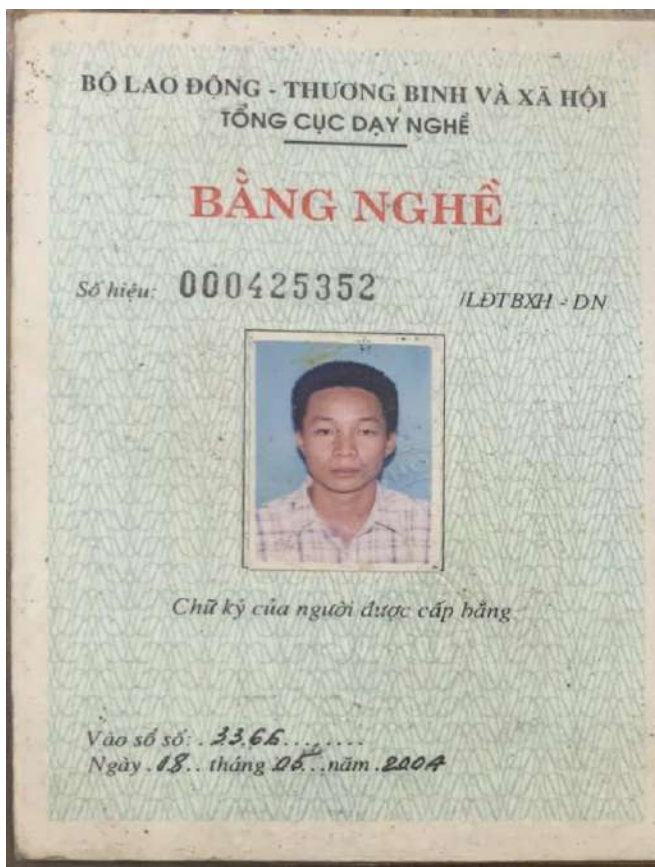 BỘ LAO ĐỘNG - THƯƠNG BINH VÀ XÃ HỘI
TỔNG CỤC DẠY NGHỀ
BẰNG NGHỀ
Số hiệu: 000425352 /LĐTBXH - DN
Chữ ký của người được cấp bằng
Vào sổ số: . 3366........
Ngày .18.. tháng 05...năm .2004